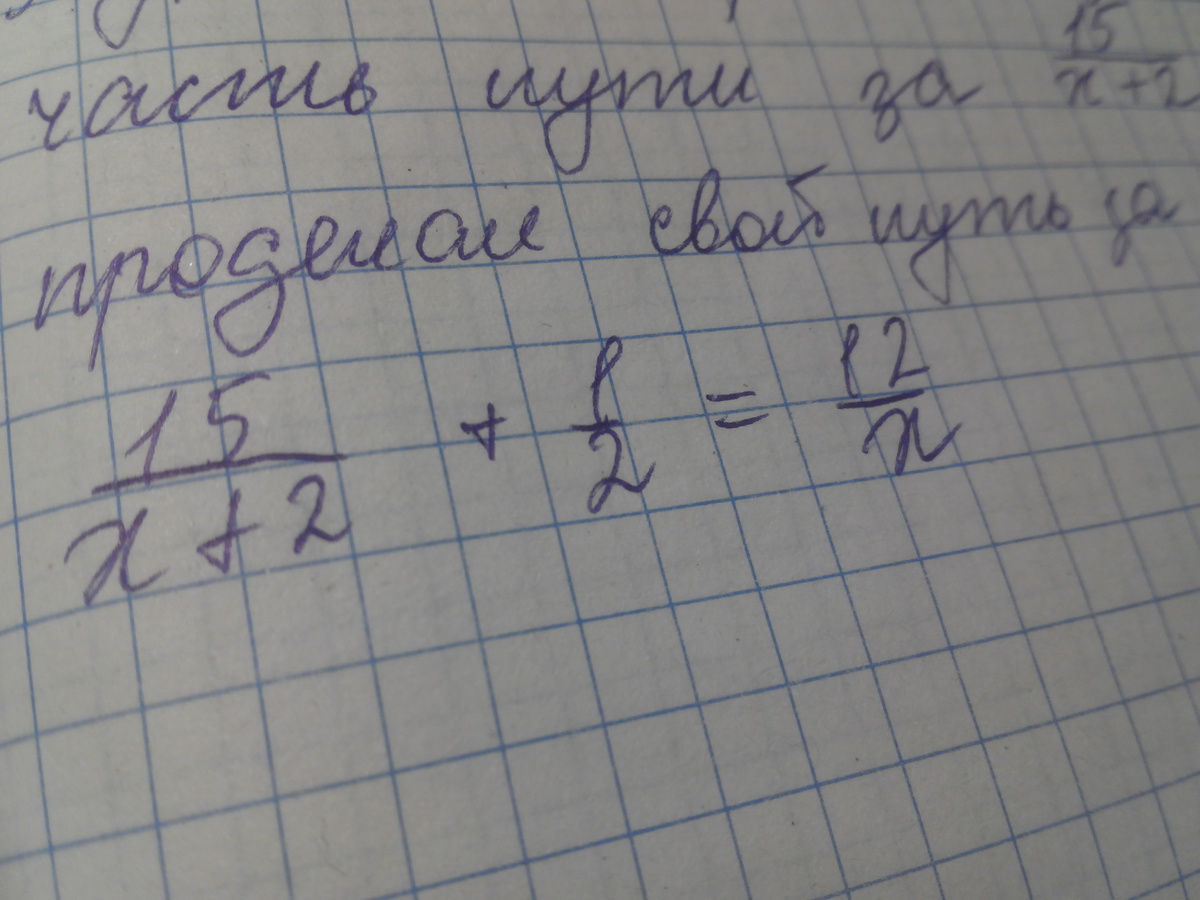 часть пути за 15/(x+2)
проделал свой путь за
15/(x+2) + 1/2 = 12/x